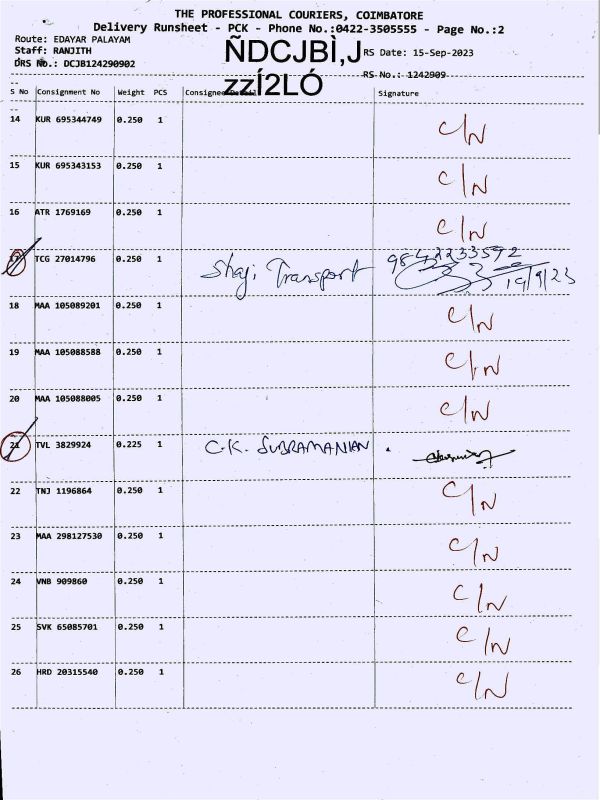 THE PROFESSIONAL COURIERS, COIMBATORE
Delivery Runsheet - PCK - Phone No.:0422-3505555 - Page No.:2
Route: EDAYAR PALAYAM
Staff: RANJITH
ÑDCJBÌ,J
RS Date: 15-Sep-2023
DRS No.: DCJB124290902
zzÍ2LÓ
RS No.: 1242909
S No Consignment No Weight PCS Consignee Detail Signature
14 KUR 695344749 0.250 1 C/N
15 KUR 695343153 0.250 1 C/N
16 ATR 1769169 0.250 1 C/N
17 TCG 27014796 0.250 1 Shaji Transport 9842233592
19/9/23
18 MAA 105089201 0.250 1 C/N
19 MAA 105088588 0.250 1 C/N
20 MAA 105088005 0.250 1 C/N
21 TVL 3829924 0.225 1 C.K. SUBRAMANIAN.
22 TNJ 1196864 0.250 1 C/N
23 MAA 298127530 0.250 1 C/N
24 VNB 909860 0.250 1 C/N
25 SVK 65085701 0.250 1 C/N
26 HRD 20315540 0.250 1 C/N